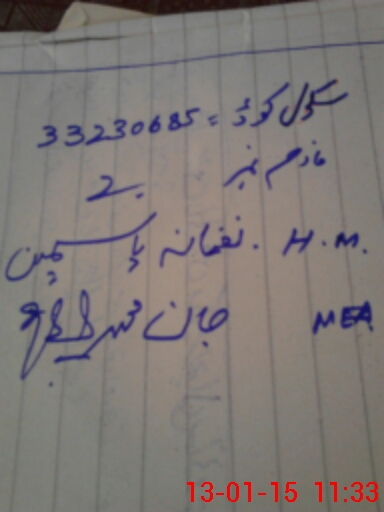 سکول کوڈ = 33230685
فارم نمبر 2
H.M. نغمانہ یاسمین
MEA جان محمد
13-01-15 11:33